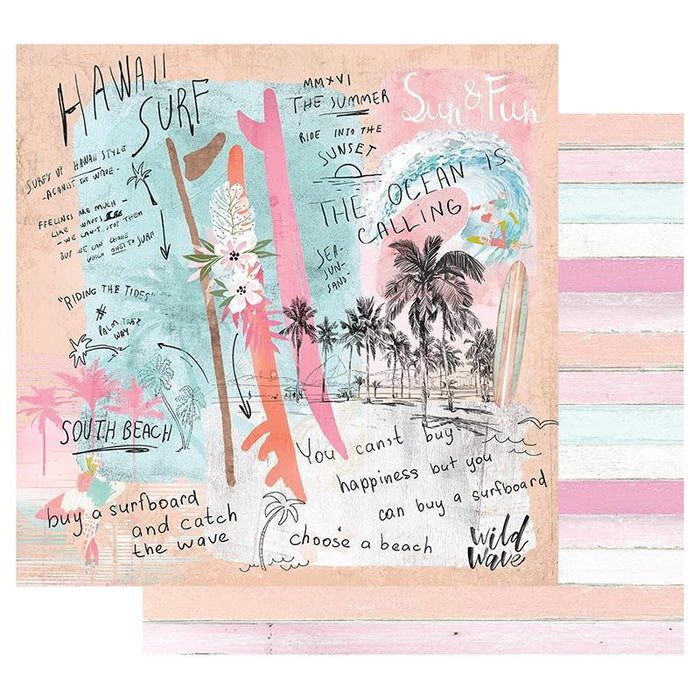 HAWAII
SURF
SURF'S UP HAWAII STYLE
- AGAINST THE WAVE -
FEELINGS ARE MUCH -
LIKE WAVES
- WE CAN'T STOP THEM
BUT WE CAN
ONES TO SURF
"RIDING THE TIDES"
PALM
WAY
SOUTH BEACH
buy a surfboard
and catch
the wave
MMXVI
THE SUMMER
RIDE INTO THE
SUNSET
Sun & Fun
THE OCEAN IS
CALLING
SEA-
SUN-
SAND
You can't buy
happiness but you
can buy a surfboard
choose a beach
wild
wave